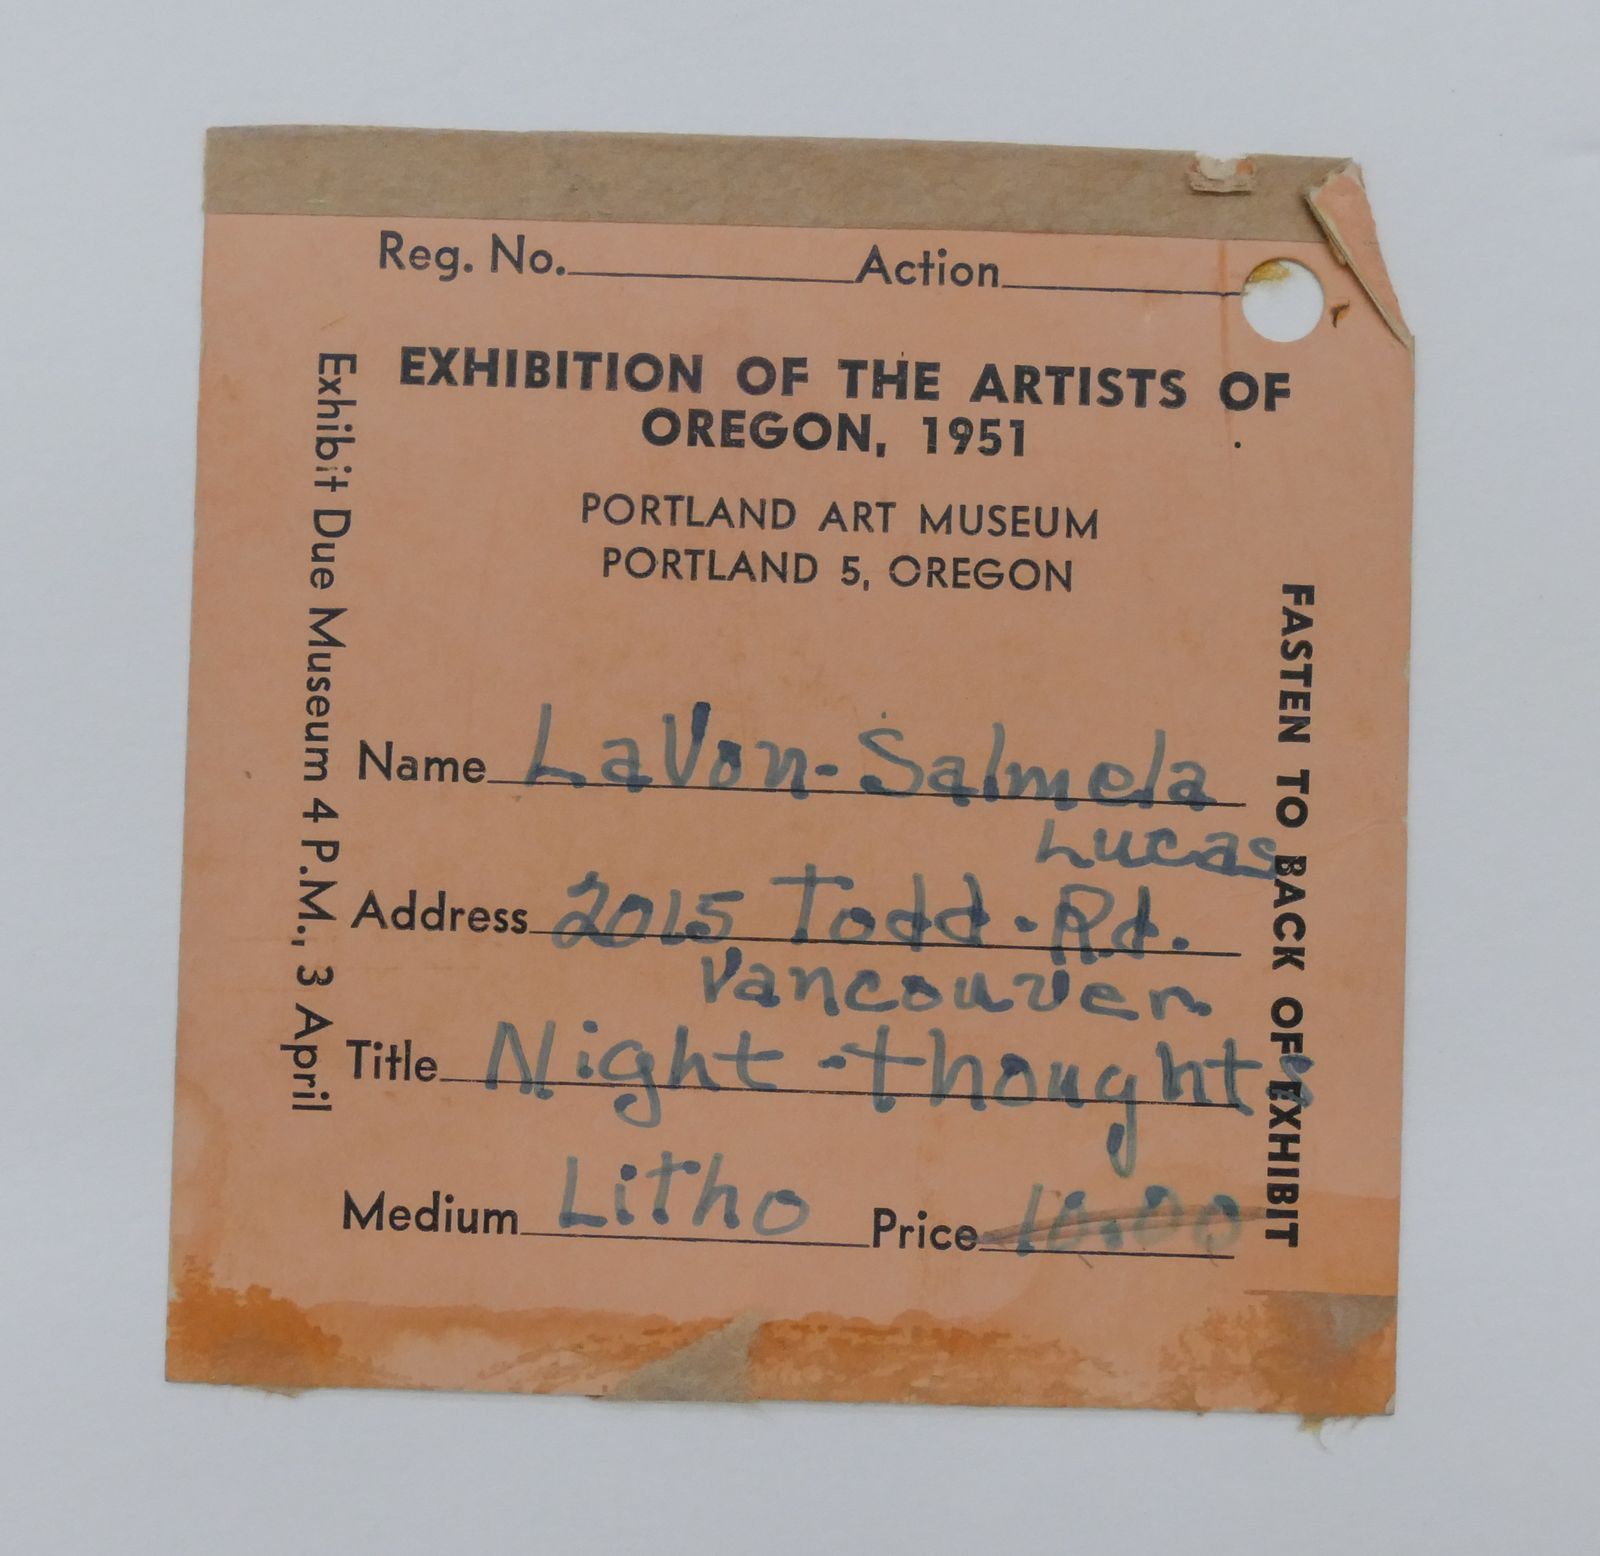 Reg. No. Action
EXHIBITION OF THE ARTISTS OF
OREGON, 1951
PORTLAND ART MUSEUM
PORTLAND 5, OREGON
Name LaVon-Salmela
Lucas
Address 2015 Todd-Rd.
Vancouver
Title Night-thoughts
Medium Litho Price 10.00
Exhibit Due Museum 4 P.M., 3 April
FASTEN TO BACK OF EXHIBIT